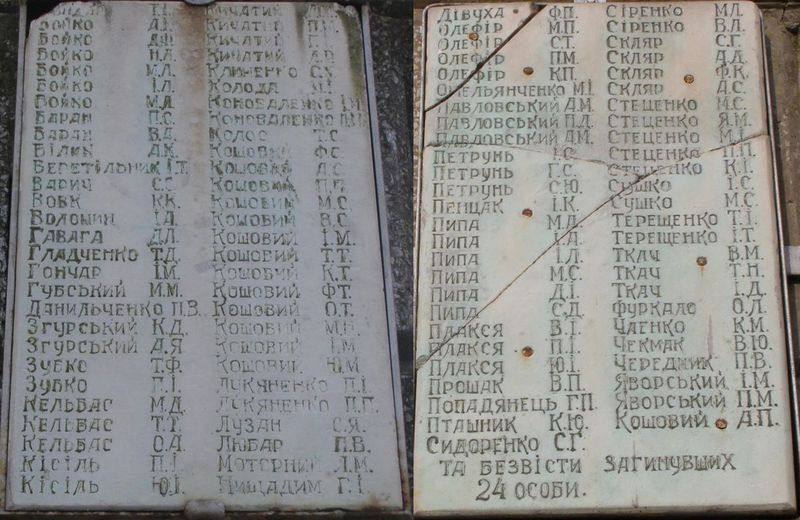 БОЙКО А.І.
БОЙКО Д.Ф.
БОЙКО Н.Л.
БОЙКО М.Л.
БОЙКО І.Л.
БОЙКО М.Д.
БАРАН П.С.
БАРАН В.Д.
БІЛИК Д.К.
БЕГЕТІЛЬНИК І.Т.
ВАРИЧ С.Є.
ВОВК К.К.
ВОЛОШИН І.Д.
ГАВАГА Д.Л.
ГЛАДЧЕНКО Т.Д.
ГОНЧАР І.М.
ГУБСЬКИЙ И.М.
ДАНИЛЬЧЕНКО П.В.
ЗГУРСЬКИЙ К.Д.
ЗГУРСЬКИЙ А.Я
ЗУБКО Т.Ф.
ЗУБКО П.І.
КЕЛЬБАС М.Д.
КЕЛЬБАС Т.Т.
КЕЛЬБАС О.А.
КІСІЛЬ П.І.
КІСІЛЬ Ю.І.
КИЧАТИЙ
КИЧАТИЙ
КИЧАТИЙ
КИЧАТИЙ
КЛИМЕНКО
КОЛОДА М.І.
КОНОВАЛЕНКО І.М.
КОНОВАЛЕНКО П.М.
КОЛОС Т.С.
КОШОВИЙ Ф.С.
КОШОВИЙ Д.С.
КОШОВИЙ П.П.
КОШОВИЙ М.С.
КОШОВИЙ В.С.
КОШОВИЙ І.М.
КОШОВИЙ Т.Т.
КОШОВИЙ К.Т.
КОШОВИЙ Ф.Т.
КОШОВИЙ О.Т.
КОШОВИЙ М.П.
КОШОВИЙ І.М.
КОШОВИЙ Ю.М.
ЛУКЯНЕНКО П.І.
ЛУКЯНЕНКО П.П.
ЛУЗАН С.Я.
ЛЮБАР П.В.
МОТОРНИЙ Л.М.
НИЩАДИМ Г.І.
ДІВУХА Ф.П.
ОЛЕФІР М.П.
ОЛЕФІР С.Т.
ОЛЕФІР П.М.
ОЛЕФІР К.П.
ОМЕЛЬЯНЧЕНКО М.І.
ПАВЛОВСЬКИЙ А.М.
ПАВЛОВСЬКИЙ П.Д.
ПАВЛОВСЬКИЙ Д.М.
ПЕТРУНЬ І.С.
ПЕТРУНЬ Г.С.
ПЕТРУНЬ С.Ю.
ПЕНЦАК І.К.
ПИПА М.Д.
ПИПА І.А.
ПИПА І.Л.
ПИПА М.С.
ПИПА Д.І.
ПИПА С.Д.
ПЛАКСЯ В.І.
ПЛАКСЯ П.І.
ПЛАКСЯ Ю.І.
ПРОШАК В.П.
ПОПАДЯНЕЦЬ Г.П.
ПТАШНИК К.Ю.
СИДОРЕНКО С.Г.
СІРЕНКО М.Л.
СІРЕНКО В.Л.
СКЛЯР С.Г.
СКЛЯР Д.Д.
СКЛЯР Ф.К.
СКЛЯР А.С.
СТЕЦЕНКО М.С.
СТЕЦЕНКО Я.М.
СТЕЦЕНКО М.І.
СТЕЦЕНКО П.П.
СТЕЦЕНКО К.І.
СУШКО І.С.
СУШКО М.С.
ТЕРЕЩЕНКО Т.І.
ТЕРЕЩЕНКО І.Т.
ТКАЧ В.М.
ТКАЧ Т.Н.
ТКАЧ І.Д.
ФУРКАЛО О.Л.
ЧАЕНКО К.М.
ЧЕКМАК В.Ю.
ЧЕРЕДНИК П.В.
ЯВОРСЬКИЙ І.М.
ЯВОРСЬКИЙ П.М.
КОШОВИЙ А.П.
ТА БЕЗВІСТИ ЗАГИНУВШИХ
24 ОСОБИ.